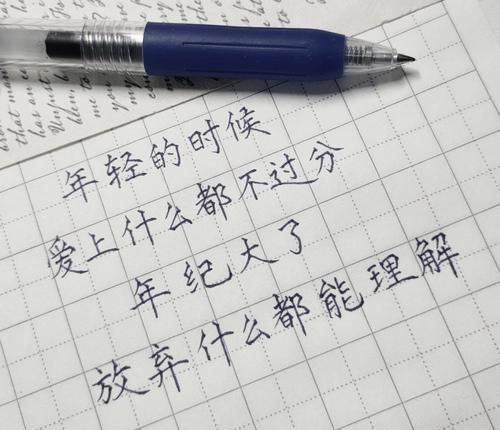 年轻的时候
爱上什么都不过分
年纪大了
放弃什么都能理解